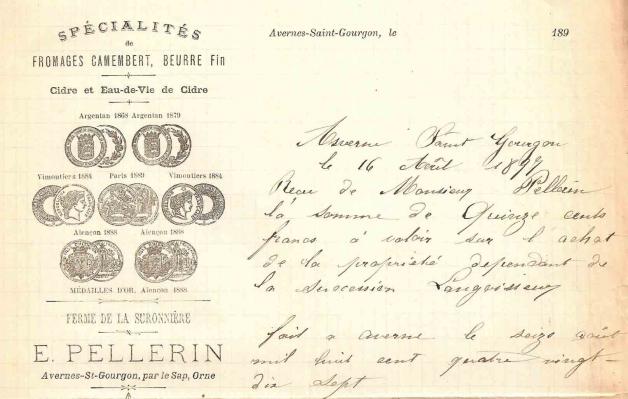 SPÉCIALITÉS
de
FROMAGES CAMEMBERT, BEURRE Fin
Cidre et Eau-de-Vie de Cidre
Argentan 1868 Argentan 1879
Vimoutiers 1884 Paris 1889 Vimoutiers 1884
Alençon 1888 Alençon 1898
MÉDAILLES D'OR, Alençon 1888
FERME DE LA SURONNIÈRE
E. PELLERIN
Avernes-St-Gourgon, par le Sap, Orne
Avernes-Saint-Gourgon, le 189
Averne Saint Gourgon
le 16 Août 1897
Recu de Monsieur Pellerin
la somme de Quinze cents
francs a valoir sur l'achat
de la propriété dependant de
la succession
fait a averne le seize août
mil huit cent quatre vingt-
dix sept